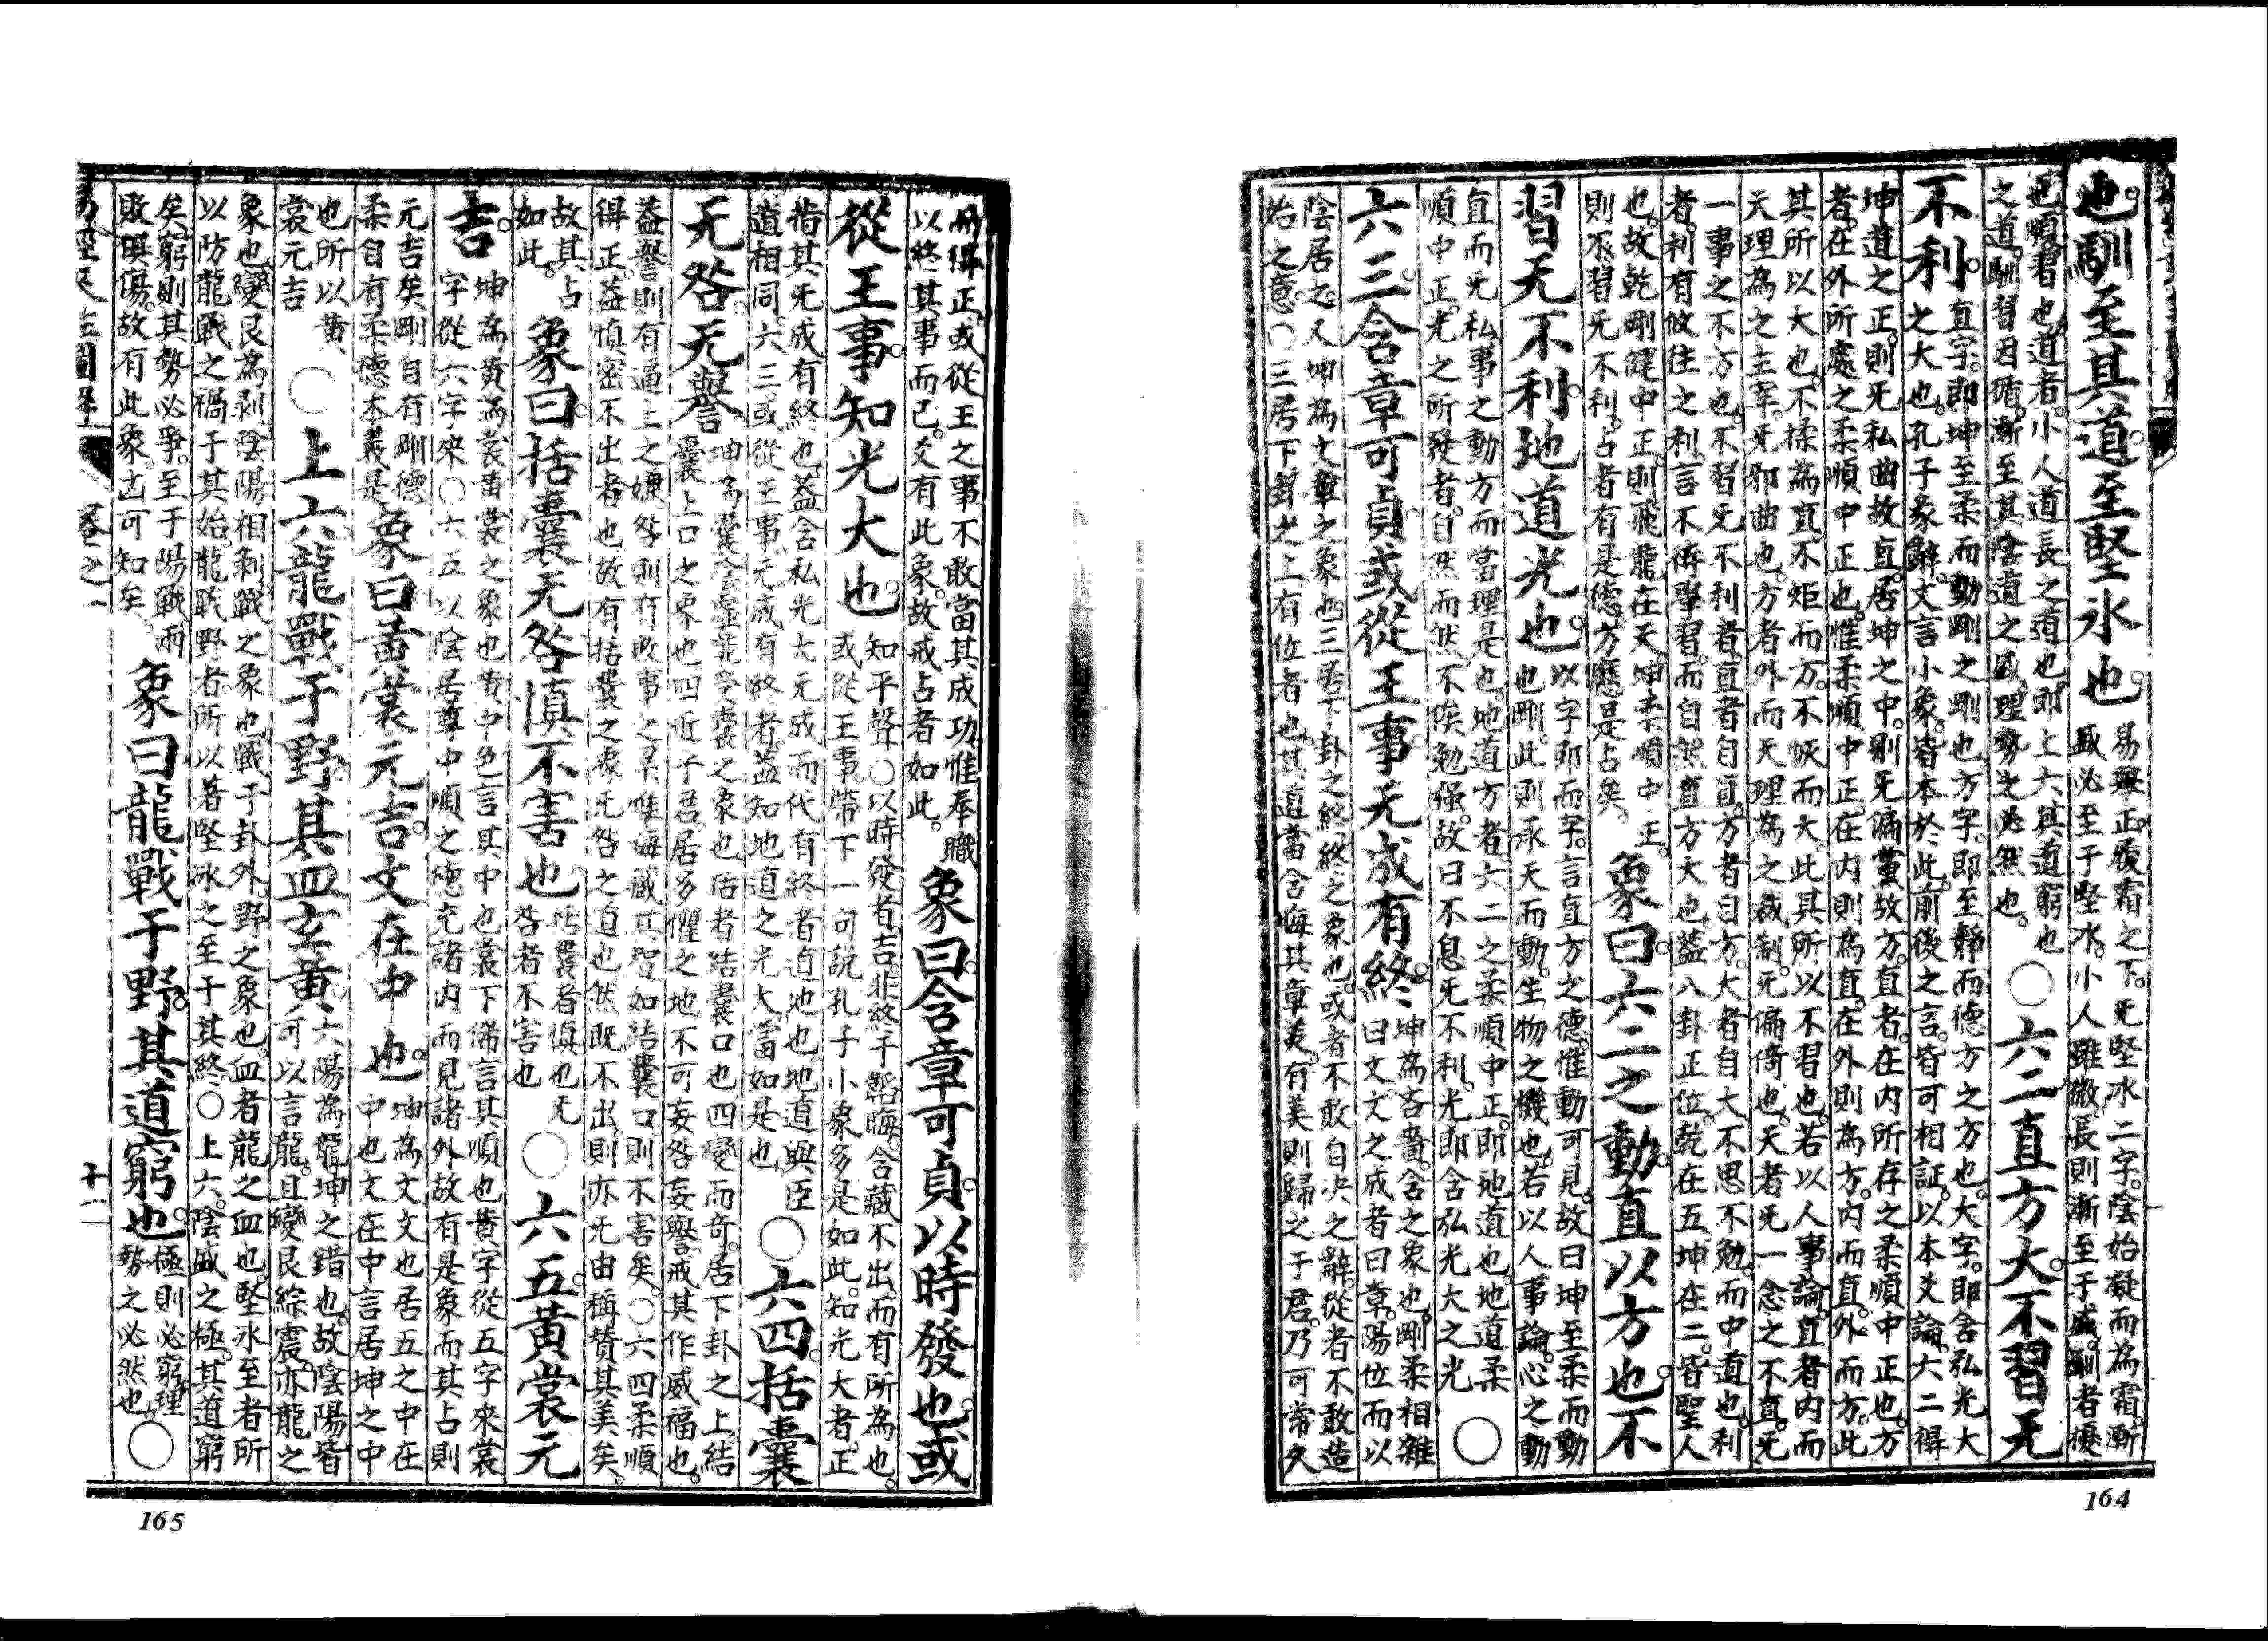 也馴至其道至堅氷也
易舉正履霜之下无堅氷二字陰始凝而為霜漸
盛必至于堅氷小人雖微長則漸至于盛馴者擾
也順習也道者小人道長之道也即上六其道窮也
之道馴習因循漸至其陰道之盛理勢之必然也
○六二直方大不習无
不利
直字即坤至柔而動剛之剛也方字即至靜而德方之方也大字即含弘光大
之大也孔子象辭文言小象皆本於此前後之言皆可相証以本爻論六二得
坤道之正則无私曲故直居坤之中則无偏黨故方直者在內所存之柔順中正也方
者在外所處之柔順中正也惟柔順中正在內則為直在外則為方內而直外而方此
其所以大也不揉為直不矩而方不恢而大此其所以不習也若以人事論直者內而
天理為之主宰无邪曲也方者外而天理為之裁制无偏倚也大者无一念之不直无
一事之不方也不習无不利者直者自直方者自方大者自大不思不勉而中道也利
者利有攸往之利言不待學習而自然直方大也蓋八卦正位乾在五坤在二皆聖人
也故乾剛健中正則飛龍在天坤柔順中正
則不習无不利占者有是德方應是占矣
象曰六二之動直以方也不
習无不利地道光也
以字即而字言直方之德惟動可見故曰坤至柔而動
也剛此則承天而動生物之機也若以人事論心之動
直而无私事之動方而當理是也地道方者六二之柔順中正即地道也地道柔
順中正光之所發者自然而然不俟勉强故曰不息无不利光即含弘光大之光
○
六三含章可貞或從王事无成有終
坤為吝嗇含之象也剛柔相雜
曰文文之成者曰章陽位而以
陰居之又坤為文章之象也三居下卦之終終之象也或者不敢自決之辭從者不敢造
始之意○三居下卦之上有位者也其道當含晦其章美有美則歸之于君乃可常久
而得正或從王之事不敢當其成功惟奉職
以終其事而已爻有此象故戒占者如此
象曰含章可貞以時發也或
從王事知光大也
知平聲○以時發者言非終于韜晦含藏不出而有所為也
或從王事帶下一句說孔子小象多是如此知光大者正
指其无成有終也蓋含私光大无成而代有終者道地也地道與臣
道相同六三或從王事无成有終者蓋知地道之光大當如是也
○六四括囊
无咎无譽
坤為囊含虛能受囊之象也括者結囊口也四變而奇居下卦之上結
囊上口之象也四近乎君居多懼之地不可妄咎妄譽戒其作威福也
蓋譽則有逼上之嫌咎則有敗事之累惟晦藏其智如結囊口則不害矣○六四柔順
得正蓋慎密不出者也故有括囊之象无咎之道也然既不出則亦无由稱贊其美矣
故其占
如此
象曰括囊无咎慎不害也
括囊者慎也无
咎者不害也
○六五黃裳元
吉
坤為黃為裳黃裳之象也黃中色言其中也裳下飾言其順也黃字從五字來裳
字從六字來○六五以陰居尊中順之德充諸內而見諸外故有是象而其占則
元吉矣剛自有剛德
柔自有柔德本義是
象曰黃裳元吉文在中也
坤為文文也居五之中在
中也文在中言居坤之中
也所以黃
裳元吉
○上六龍戰于野其血玄黃
六陽為龍坤之錯也故陰陽皆
可以言龍且變艮綜震亦龍之
象也變艮為剥陰陽相剥戰之象也戰于卦外野之象也血者龍之血也堅氷至者所
以防龍戰之禍于其始龍戰野者所以著堅氷之至于其終○上六陰盛之極其道窮
矣窮則其勢必爭至于陽戰兩
敗俱傷故有此象占可知矣
象曰龍戰于野其道窮也
極則必窮理
勢之必然也
○
卷之一
十一
165
164